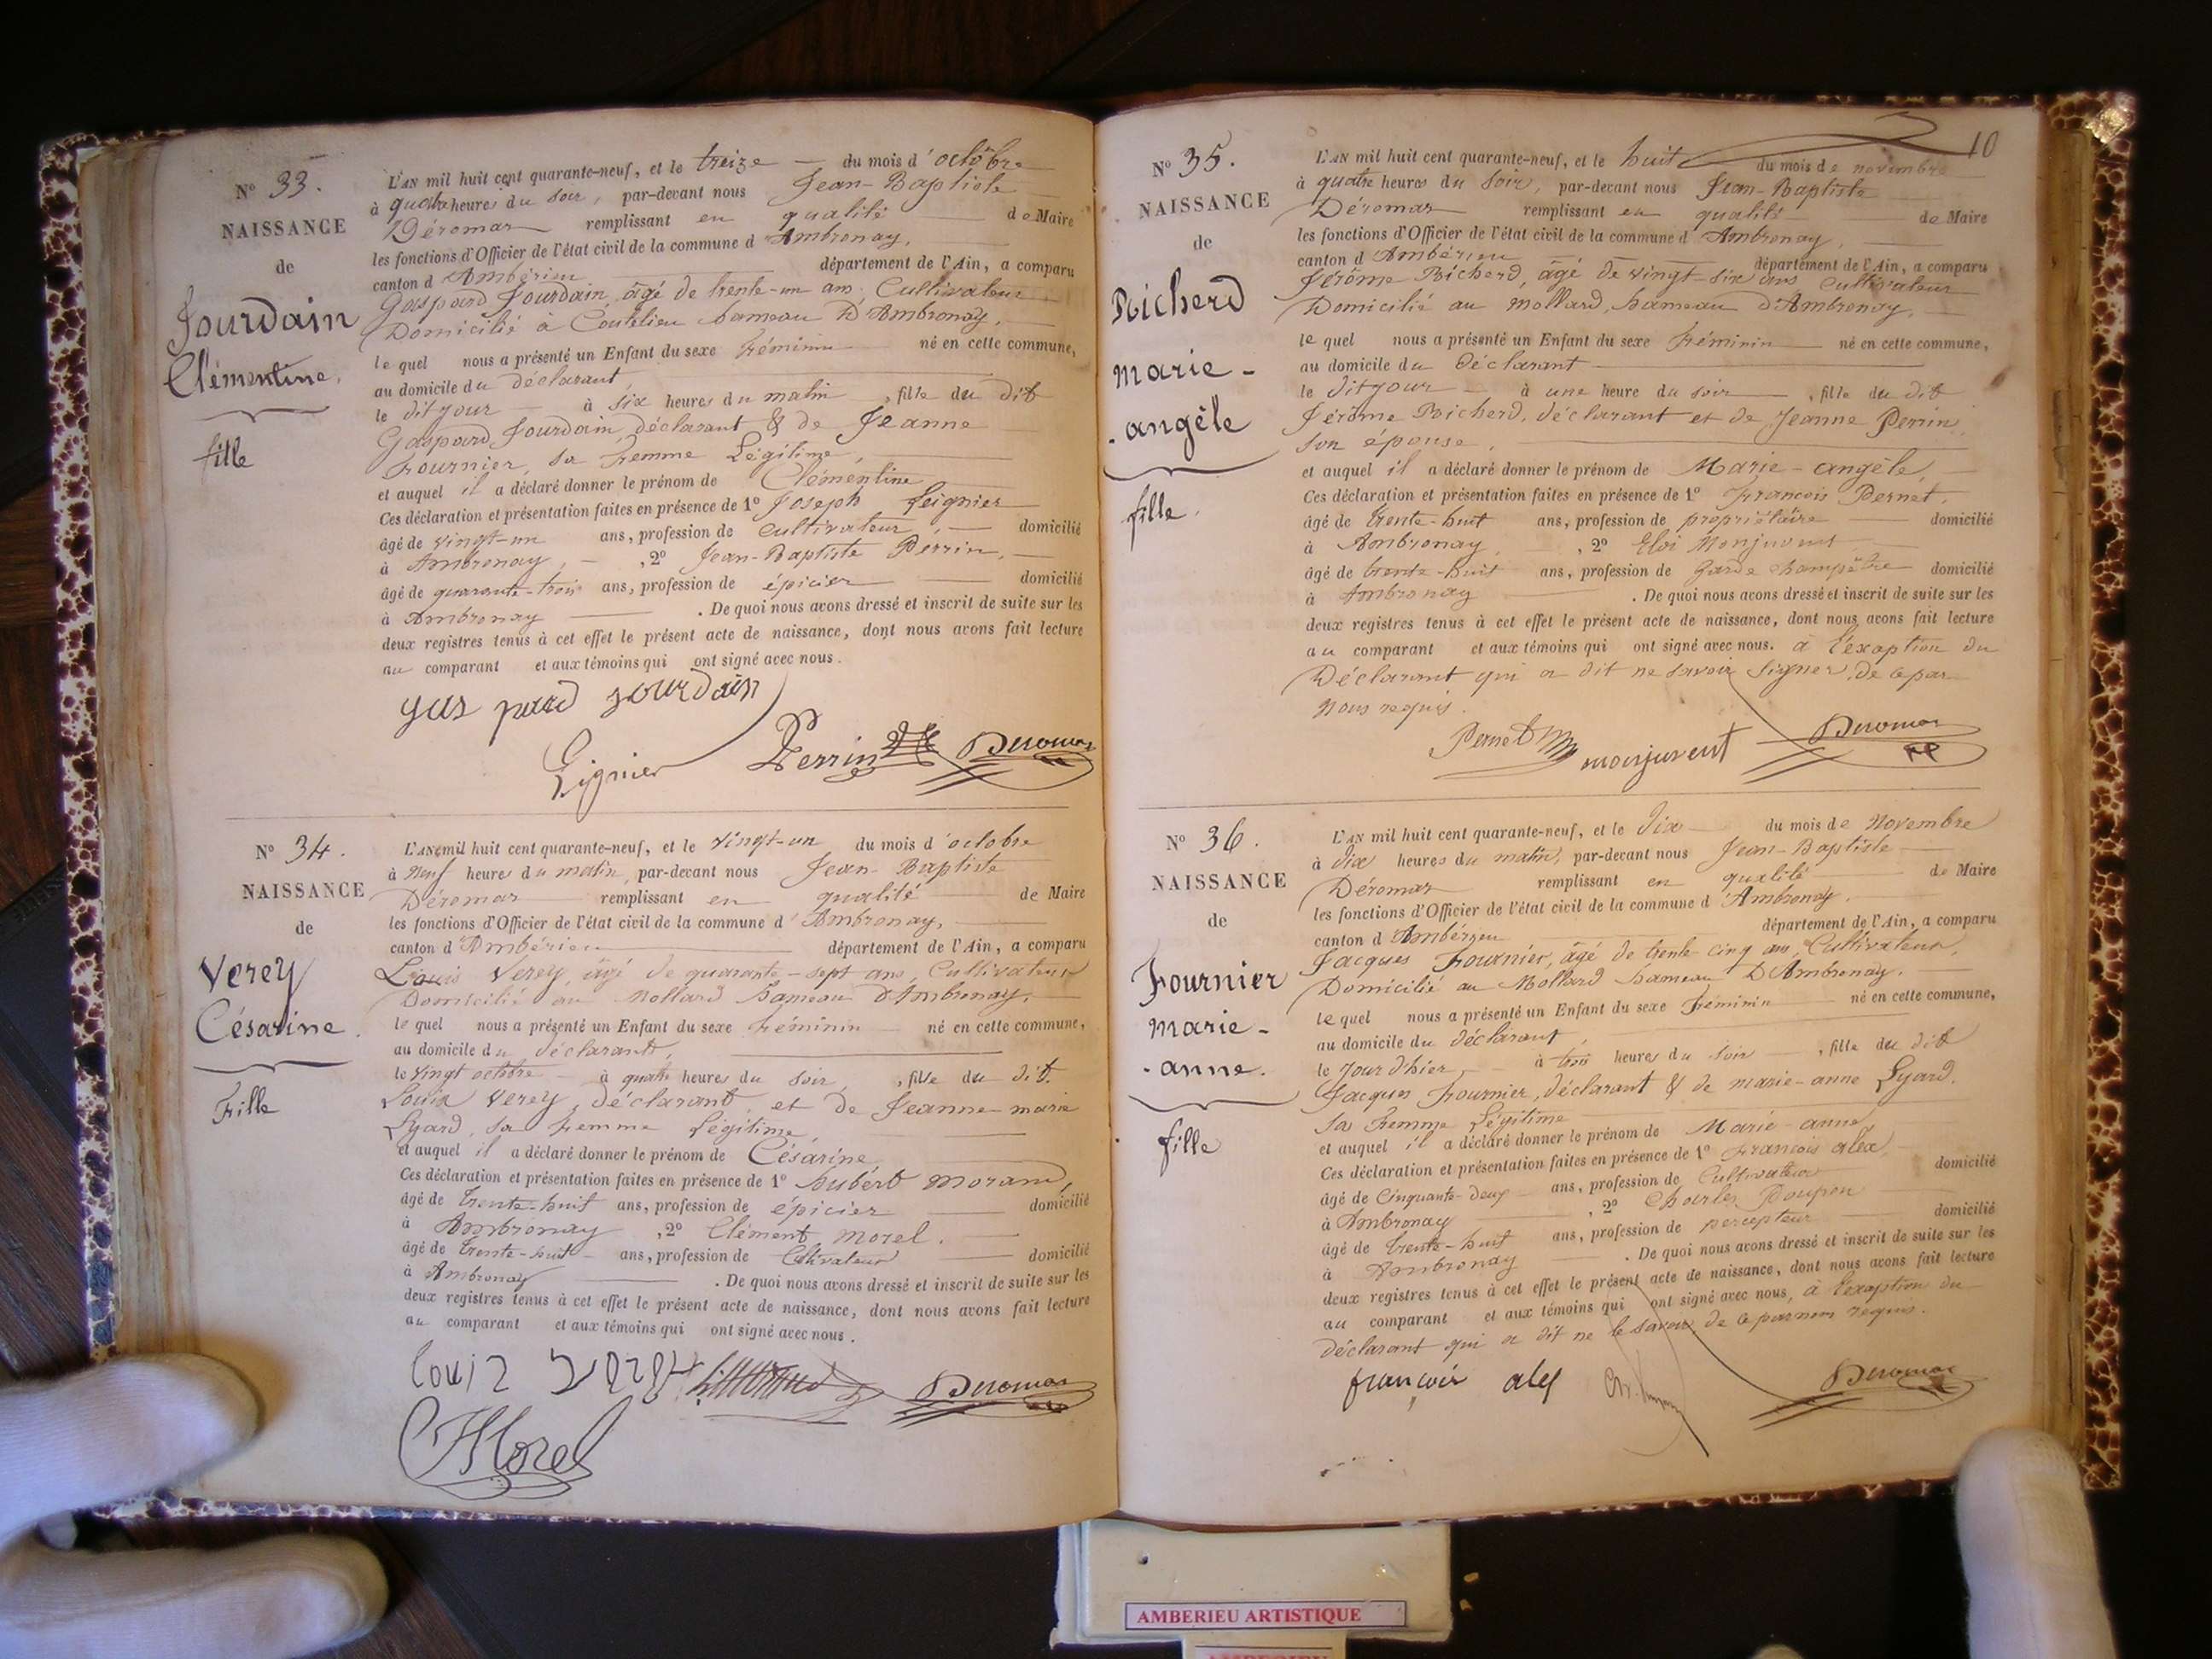 N° 33.
NAISSANCE
de
Jourdain
Clémentine.
fille
L'AN mil huit cent quarante-neuf, et le treize du mois d'octobre
à quatre heures du soir, par-devant nous Jean-Baptiste
Déromas remplissant en qualité de Maire
les fonctions d'Officier de l'état civil de la commune d'Ambronay,
canton d'Ambérieu département de l'Ain, a comparu
Gaspard Jourdain, âgé de trente-un ans, Cultivateur
Domicilié à Coutelieu hameau D'Ambronay,
lequel nous a présenté un Enfant du sexe Féminin né en cette commune,
au domicile du déclarant,
le dit jour à six heures du matin, fille du dit
Gaspard Jourdain, déclarant & de Jeanne
Fournier, sa Femme Légitime,
et auquel il a déclaré donner le prénom de Clémentine
Ces déclaration et présentation faites en présence de 1° Joseph Leignier
âgé de vingt-un ans, profession de Cultivateur, domicilié
à Ambronay, 2° Jean-Baptiste Perrin,
âgé de quarante-trois ans, profession de épicier domicilié
à Ambronay. De quoi nous avons dressé et inscrit de suite sur les
deux registres tenus à cet effet le présent acte de naissance, dont nous avons fait lecture
au comparant et aux témoins qui ont signé avec nous.
gas pard jourdain
Lignier Perrin Deromas
N° 34.
NAISSANCE
de
Verey
Césarine.
Fille
L'AN mil huit cent quarante-neuf, et le vingt-un du mois d'octobre
à neuf heures du matin, par-devant nous Jean-Baptiste
Déromas remplissant en qualité de Maire
les fonctions d'Officier de l'état civil de la commune d'Ambronay,
canton d'Ambérieu département de l'Ain, a comparu
Louis Verey, âgé de quarante-sept ans, Cultivateur
Domicilié au Mollard hameau d'Ambronay,
lequel nous a présenté un Enfant du sexe Féminin né en cette commune,
au domicile du déclarant,
le vingt octobre à quatre heures du soir, fille du dit
Louis Verey, déclarant, et de Jeanne-marie
Lyard, sa Femme Légitime
et auquel il a déclaré donner le prénom de Césarine
Ces déclaration et présentation faites en présence de 1° hubert morand,
âgé de trente-huit ans, profession de épicier domicilié
à Ambronay, 2° Clément morel.
âgé de trente-huit ans, profession de Cultivateur domicilié
à Ambronay. De quoi nous avons dressé et inscrit de suite sur les
deux registres tenus à cet effet le présent acte de naissance, dont nous avons fait lecture
au comparant et aux témoins qui ont signé avec nous.
Louis Verey Deromas
Morel
10
N° 35.
NAISSANCE
de
Richerd
marie-
-angèle
fille.
L'AN mil huit cent quarante-neuf, et le huit du mois de novembre
à quatre heures du soir, par-devant nous Jean-Baptiste
Déromas remplissant en qualité de Maire
les fonctions d'Officier de l'état civil de la commune d'Ambronay,
canton d'Ambérieu département de l'Ain, a comparu
Jérôme Richerd, âgé de vingt-six ans Cultivateur
Domicilié au mollard, hameau d'Ambronay,
lequel nous a présenté un Enfant du sexe Féminin né en cette commune,
au domicile du déclarant
le dit jour à une heure du soir, fille du dit
Jérôme Richerd, déclarant et de Jeanne Perrin,
son épouse,
et auquel il a déclaré donner le prénom de Marie-angèle,
Ces déclaration et présentation faites en présence de 1° François Pernet,
âgé de trente-huit ans, profession de propriétaire domicilié
à Ambronay, 2° Eloi Monjuvent
âgé de trente-huit ans, profession de garde champêtre domicilié
à Ambronay. De quoi nous avons dressé et inscrit de suite sur les
deux registres tenus à cet effet le présent acte de naissance, dont nous avons fait lecture
au comparant et aux témoins qui ont signé avec nous. à l'exaption du
Déclarant qui a dit ne savoir signer, de ce par
nous requis.
Pernet monjuvent Deromas
N° 36.
NAISSANCE
de
Fournier
marie-
-anne.
fille
L'AN mil huit cent quarante-neuf, et le dix du mois de Novembre
à dix heures du matin, par-devant nous Jean-Baptiste
Déromas remplissant en qualité de Maire
les fonctions d'Officier de l'état civil de la commune d'Ambronay,
canton d'Ambérieu département de l'Ain, a comparu
Jacques Fournier, âgé de trente-cinq ans, Cultivateur,
Domicilié au Mollard hameau D'Ambronay,
lequel nous a présenté un Enfant du sexe Féminin né en cette commune,
au domicile du déclarant,
le jour d'hier à trois heures du soir, fille du dit
Jacques Fournier, déclarant & de marie-anne Lyard,
sa Femme Légitime
et auquel il a déclaré donner le prénom de Marie-anne
Ces déclaration et présentation faites en présence de 1° François alex,
âgé de Cinquante-deux ans, profession de Cultivateur domicilié
à Ambronay, 2° Charles Poupon
âgé de trente-huit ans, profession de percepteur domicilié
à Ambronay. De quoi nous avons dressé et inscrit de suite sur les
deux registres tenus à cet effet le présent acte de naissance, dont nous avons fait lecture
au comparant et aux témoins qui ont signé avec nous, à l'exaption du
déclarant qui a dit ne le savoir, de ce par nous requis.
françois alex Deromas
AMBERIEU ARTISTIQUE